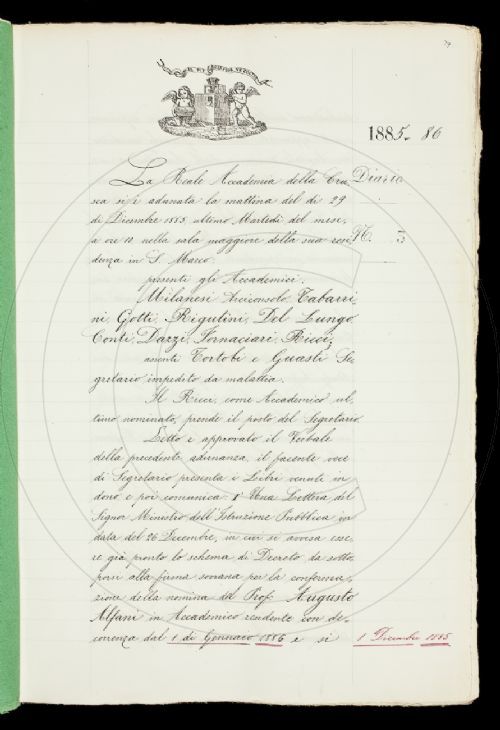 IL PIÙ BEL FIOR NE COGLIE
1885-86
La Reale Accademia della Cru
Diario
sca si è adunata la mattina del dì 29
di Dicembre 1885, ultimo Martedì del mese,
a ore 10 nella sala maggiore della sua resi
N. 3
denza in S. Marco.
presenti gli Accademici.
Milanesi Arciconsolo, Tabarri
ni, Gotti, Rigutini, Del Lungo,
Conti, Dazzi, Fornaciari, Ricci,
assenti Tortoli e Guasti Se
gretario impedito da malattia.
Il Ricci, come Accademico ul,
timo nominato, prende il posto del Segretario.
Letto e approvato il Verbale
della precedente adunanza, il facente voce
di Segretario presenta i Libri venuti in
dono e poi comunica: 1° Una Lettera del
Signor Ministro dell'Istruzione Pubblica in
data del 26 Dicembre, in cui si avvisa esse,
re già pronto lo schema di Decreto da sotto,
porsi alla firma sovrana per la conferma,
zione della nomina del Prof. Augusto
Alfani in Accademico residente con de,
correnza dal 1 di Gennaio 1886 e si
1 Dicembre 1885